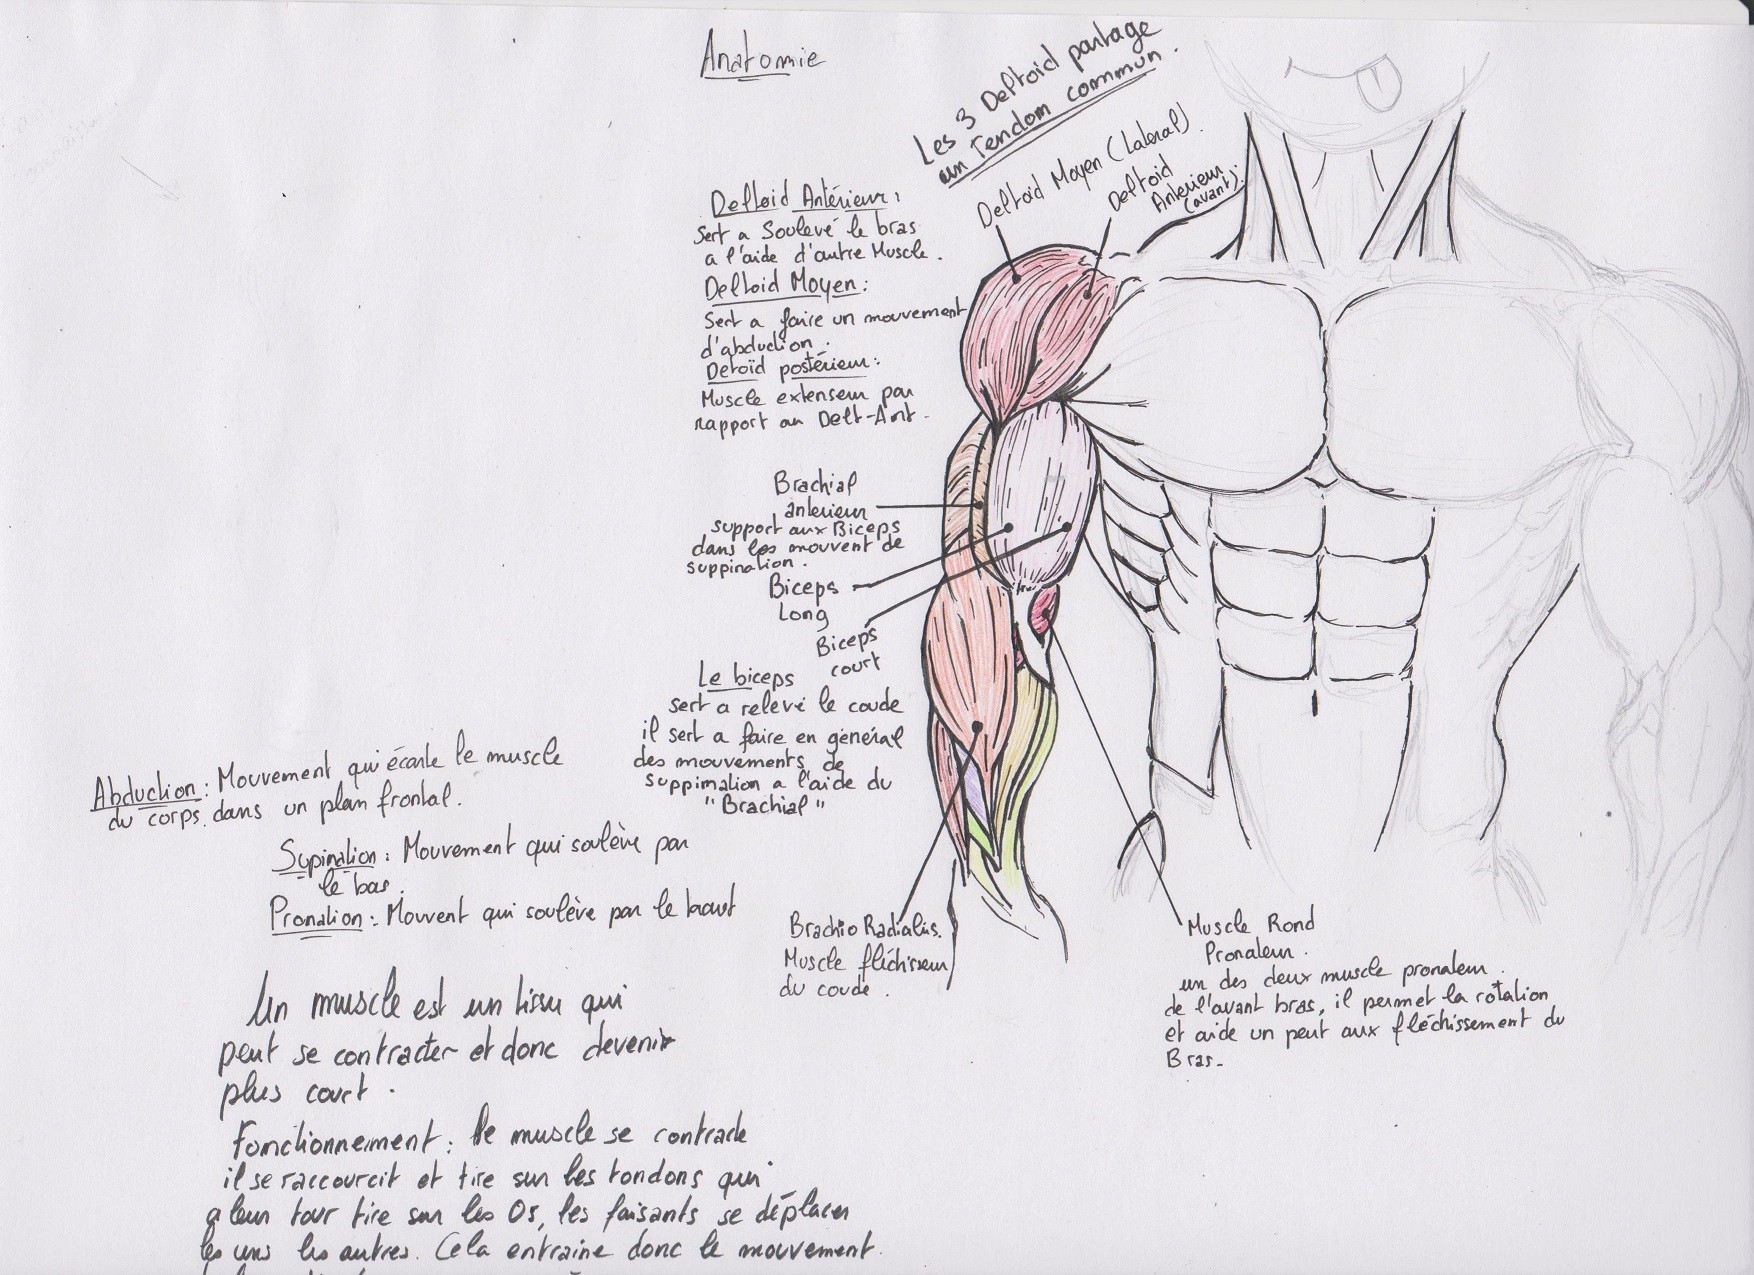 Anatomie
Les 3 Deltoid partage
un Tendom commun.
Deltoid Moyen (Lateral).
Deltoid
Anterieur
(avant):
Deltoid Antérieur:
Sert a Soulevé le bras
a l'aide d'autre Muscle.
Deltoid Moyen:
Sert a faire un mouvement
d'abduction.
Detoïd postérieur:
Muscle extenseur par
rapport au Delt-Ant.
Brachial
anterieur
support aux Biceps
dans les mouvent de
suppination.
Biceps
Long
Biceps
court
Le biceps
sert a relevé le coude
il sert a faire en général
des mouvements de
suppination a l'aide du
"Brachial"
Abduction: Mouvement qui écarte le muscle
du corps dans un plan frontal.
Supination: Mouvement qui soulève par
le bas.
Pronation: Mouvent qui soulève par le haut
Brachio Radialis.
Muscle fléchisseur
du coude.
Muscle Rond
Pronateur.
un des deux muscle pronateur.
de l'avant bras, il permet la rotation
et aide un peut aux fléchissement du
Bras.
Un muscle est un tissu qui
peut se contracter et donc devenir
plus court.
Fonctionnement: le muscle se contracte
il se raccourcit et tire sur les tondons qui
a leur tour tire sur les Os, les faisants se déplacer
les uns les autres. Cela entraine donc le mouvement.